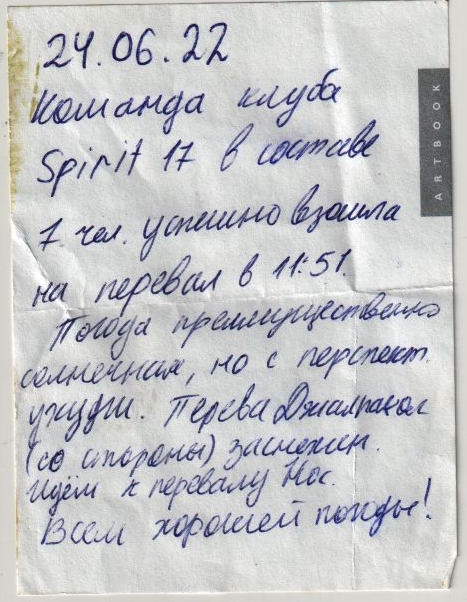 24.06.22
Команда клуба
Spirit 17 в составе
7 чел. успешно взошла
на перевал в 11:51.
Погода преимущественно
солнечная, но с перспект.
ухудш. Перева Джалпакол
(со стороны) заснежен.
Идём к перевалу Нос.
Всем хорошей погоды!
ARTBOOK